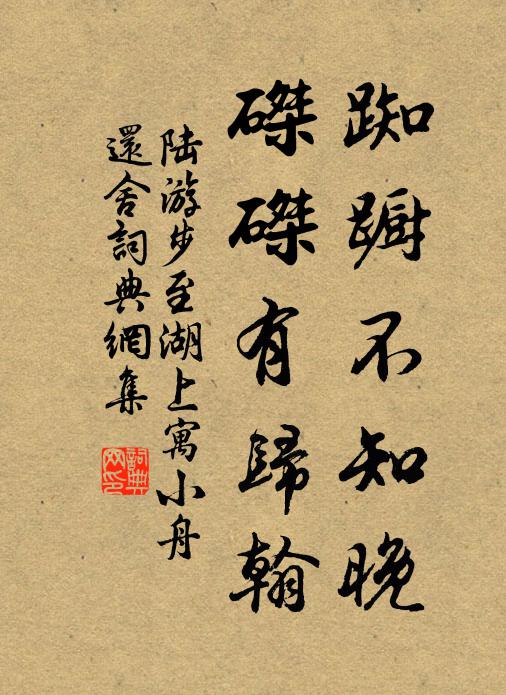 踟蹰不知晚
磔磔有歸翰
陆游步至湖上寓小舟
還舍詞典網集
詞典
网印